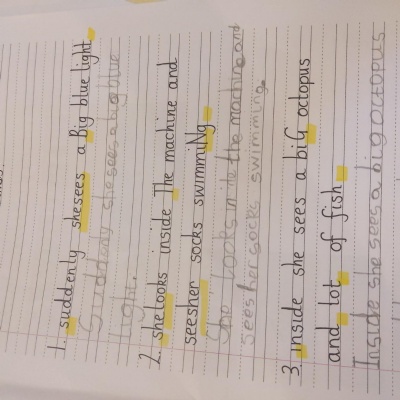 1. suddenly shesees a Big blue light
Suddenly she sees a big blue
light.
2. shelooks inside The machine and
seesher socks swimmiNg
She looks in the machine and
sees her socks swimming.
3. inside she sees a biG octopus
and lot of fish
Inside she sees a big octopus